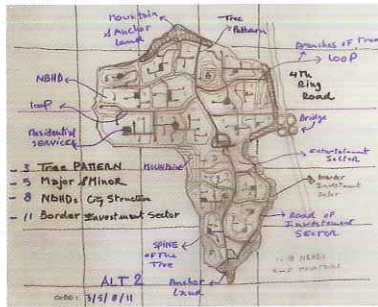 Mountain
& Anchor
Land
Tree
Pattern
Branches of Tree
LOOP
4TH
Ring
Road
NBHD
LOOP
Residential
SERVICES
Bridge
Entertainment
Sector
MOUNTAINS
Border
Investment
Sector
- 3 Tree PATTERN
- 5 Major & Minor
- 8 NBHDs City Structure
- 11 Border Investment Sector
Road of
Investment
SECTOR
SPINE
of the
Tree
ALT 2
Anchor
Land
CODE: 3/5/8/11